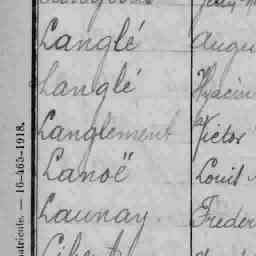 Langlé Augu
Langlé Hyacin
Langlement Victor
Lanoë Louis
Launay Freder
matricule. — 16-465-1918.